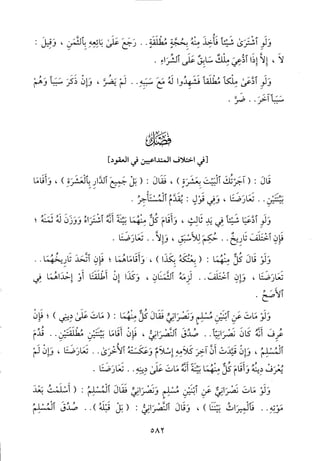 وَلَوِ ٱشْتَرَىٰ شَيْئاً فَأُخِذَ مِنْهُ بِحُجَّةٍ مُطْلَقَةٍ.. رَجَعَ عَلَىٰ بَائِعِهِ بِٱلثَّمَنِ ، وَقِيلَ :
لاَ ، إِلاَّ إِذَا ٱدُّعِيَ مِلْكٌ سَابِقٌ عَلَى ٱلشِّرَاءِ .
وَلَوِ ٱدَّعَىٰ مِلْكاً مُطْلَقاً فَشَهِدُوا لَهُ مَعَ سَبَبِهِ.. لَمْ يَضُرَّ ، وَإِنْ ذَكَرَ سَبَباً وَهُمْ
سَبَباً آخَرَ.. ضَرَّ .
فَصْلٌ
[في اختلاف المتداعيين في العقود]
قَالَ : ( آجَرْتُكَ ٱلْبَيْتَ بِعَشَرَةٍ ) ، فَقَالَ : ( بَلْ جَمِيعَ ٱلدَّارِ بِٱلْعَشَرَةِ ) ، وَأَقَامَا
بَيِّنَتَيْنِ.. تَعَارَضَتَا ، وَفِي قَوْلٍ : يُقَدَّمُ ٱلْمُسْتَأْجِرُ .
وَلَوِ ٱدَّعَيَا شَيْئاً فِي يَدِ ثَالِثٍ ، وَأَقَامَ كُلٌّ مِنْهُمَا بَيِّنَةً أَنَّهُ ٱشْتَرَاهُ وَوَزَنَ لَهُ ثَمَنَهُ ؛
فَإِنِ ٱخْتَلَفَ تَارِيخٌ.. حُكِمَ لِلأَسْبَقِ ، وَإِلاَّ.. تَعَارَضَتَا .
وَلَوْ قَالَ كُلٌّ مِنْهُمَا : ( بِعْتُكَهُ بِكَذَا ) ، وَأَقَامَاهُمَا ؛ فَإِنِ ٱتَّحَدَ تَارِيخُهُمَا..
تَعَارَضَتَا ، وَإِنِ ٱخْتَلَفَ.. لَزِمَهُ ٱلثَّمَنَانِ ، وَكَذَا إِنْ أُطْلِقَتَا أَوْ إِحْدَاهُمَا فِي
ٱلأَصَحِّ .
وَلَوْ مَاتَ عَنِ ٱبْنَيْنِ مُسْلِمٍ وَنَصْرَانِيٍّ فَقَالَ كُلٌّ مِنْهُمَا : ( مَاتَ عَلَىٰ دِينِي ) ؛ فَإِنْ
عُرِفَ أَنَّهُ كَانَ نَصْرَانِيّاً.. صُدِّقَ ٱلنَّصْرَانِيُّ ، فَإِنْ أَقَامَا بَيِّنَتَيْنِ مُطْلَقَتَيْنِ.. قُدِّمَ
ٱلْمُسْلِمُ ، وَإِنْ قَيَّدَتْ أَنَّ آخِرَ كَلاَمِهِ إِسْلاَمٌ وَعَكَسَتْهُ ٱلأُخْرَىٰ.. تَعَارَضَتَا ، وَإِنْ لَمْ
يُعْرَفْ دِينُهُ وَأَقَامَ كُلٌّ مِنْهُمَا بَيِّنَةً أَنَّهُ مَاتَ عَلَىٰ دِينِهِ.. تَعَارَضَتَا .
وَلَوْ مَاتَ نَصْرَانِيٌّ عَنِ ٱبْنَيْنِ مُسْلِمٍ وَنَصْرَانِيٍّ فَقَالَ ٱلْمُسْلِمُ : ( أَسْلَمْتُ بَعْدَ
مَوْتِهِ.. فَٱلْمِيرَاثُ بَيْنَنَا ) ، وَقَالَ ٱلنَّصْرَانِيُّ : ( بَلْ قَبْلَهُ ).. صُدِّقَ ٱلْمُسْلِمُ
٥٨٢